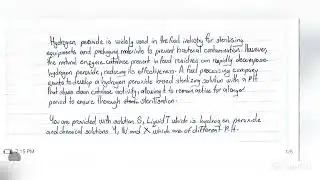 Hydrogen peroxide is widely used in the food industry for sterilising
equipments and packaging materials to prevent bacterial contamination. However,
the natural enzyme catalase present in food residues can rapidly decompose
hydrogen peroxide, reducing its effectiveness. A food processing company
wants to develop a hydrogen peroxide based sterilizing solution with a PH
that slows down catalase activity, allowing it to remain active for a longer
period to ensure thorough sterilisation.
You are provided with solution S, Liquid T which is hydrogen peroxide
and chemical solutions Y, W and X which are of different P.H.
2:15 PM
1/6